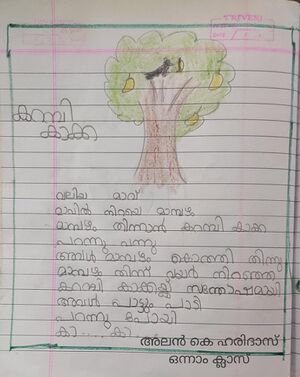 TRIVENI
കറമ്പി
കാക്ക
വലിയ മാവ്
മാവിൽ നിറയെ മാമ്പഴം
മാമ്പഴം തിന്നാൻ കറമ്പി കാക്ക
പറന്നു വന്നു
അവൾ മാമ്പഴം കൊത്തി തിന്നു
മാമ്പഴം തിന്ന് വയർ നിറഞ്ഞ
കറമ്പി കാക്കയ്ക്ക് സന്തോഷമായി
അവൾ പാട്ടും പാടി
പറന്നു പോയി
കാ ..... കാ .....
അലൻ കെ ഹരിദാസ്
ഒന്നാം ക്ലാസ്